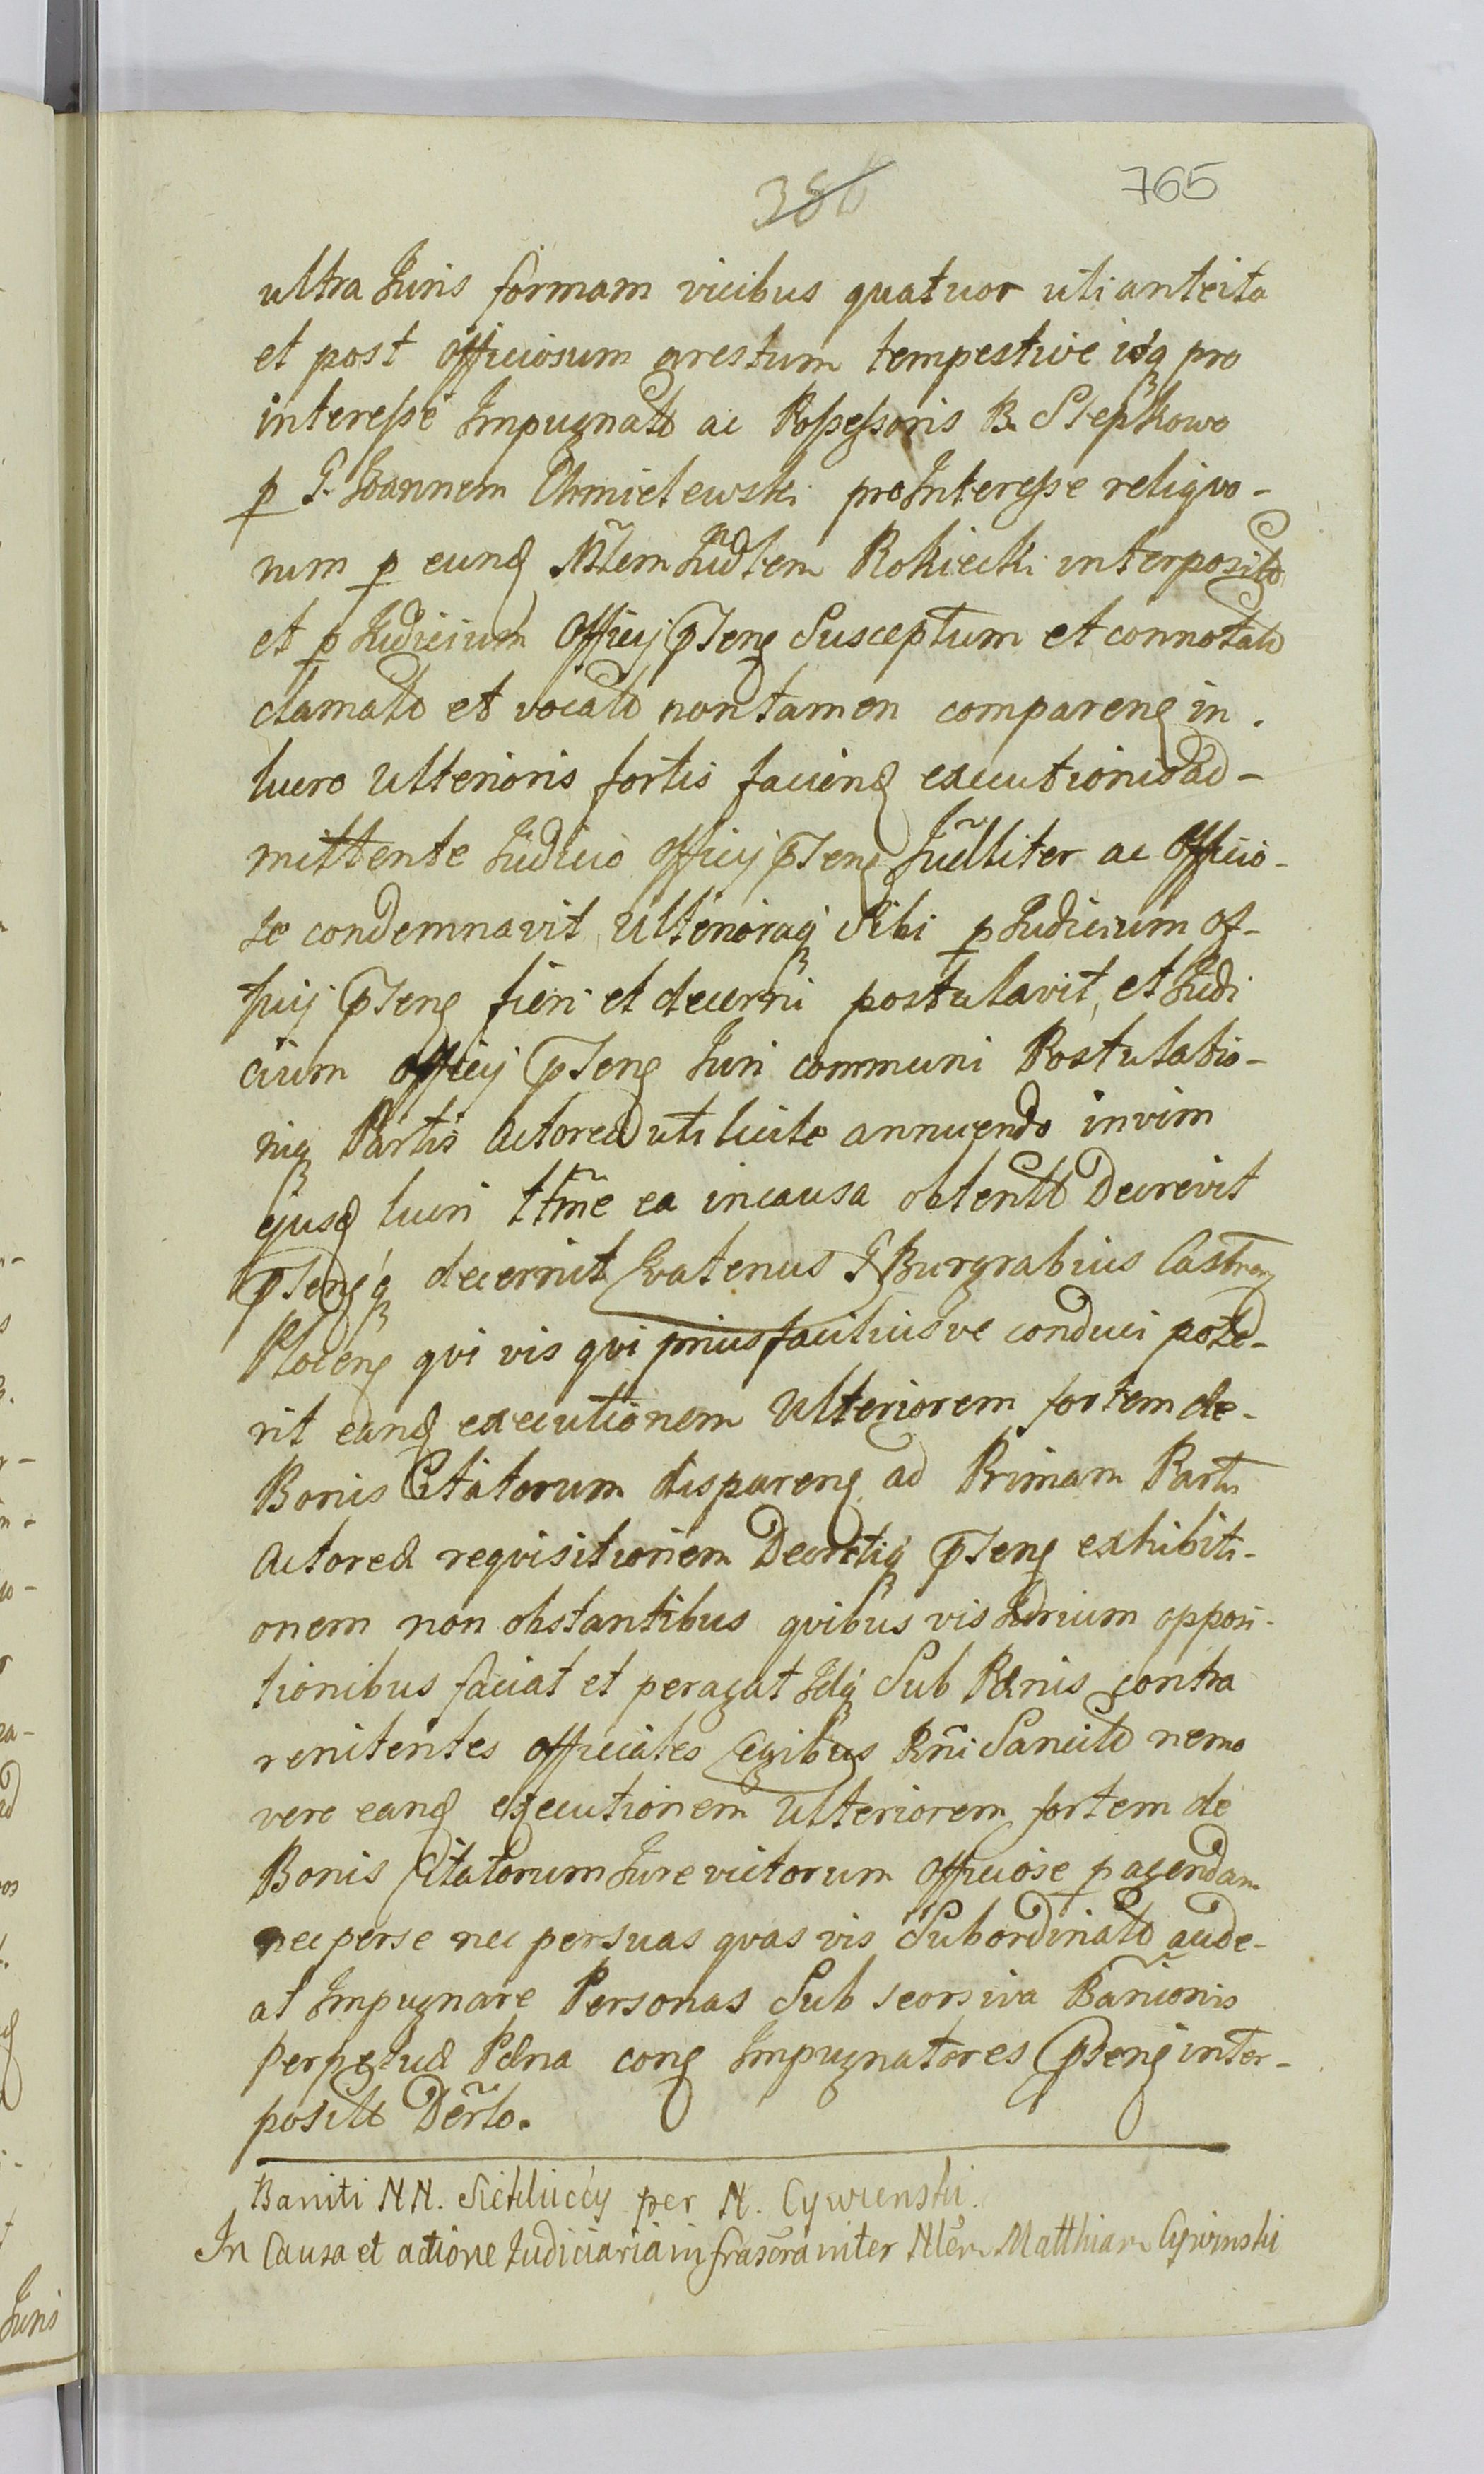 386
765
ultra Juris formam vicibus quatuor uti anteita
et post officiosum arestum tempestive idq pro
interesse Impugnato ac Possessoris B. Slepkowo
p G. Joannem Chmielewski pro Interesse reliquo-
rum p eund Mlem Judtem Rokiecki interposito
et p Judicium Officij pnseng Susceptum et connotato
clamato et vocato non tamen compareng in.
lucro Ulterioris fortis faciend executionis ad-
mittente Judicio officij pnseng Judliter ac Officio-
se condemnavit, Ulterioraq Sibi p Judicium of-
ficij pnseng fieri et decerni postulavit, et Judi
cium officij pnseng Juri communi Postulatio-
niq Partis Actoreæ uti licite annuendo in vim
ejusd lucri ttme ea in causa obtento Decrevit
pnsengq decernit Quatenus G Burgrabius Castren
Ploceng qui vis qui prius faciliusve conduci pote-
rit eand executionem Ulteriorem fortem de-
Bonis Citatorum dispareng ad Primam Partis
Actoreæ requisitionem Decretiq pnseng exhibiti-
onem non obstantibus quibus vis Jurium opposi-
tionibus faciat et peragat Idq Sub Pœnis contra
renitentes officiales Legibus Rni Sancito nemo
vero eand executionem Ulteriorem fortem de
Bonis Citatorum Jure victorum officiose pagendam
nec per se nec per suas quas vis Subordinato aude-
at Impugnare Personas Sub seorsiva Banionis
Perpetuæ Pœna cong Impugnatores pnseng inter-
posito Derto.
Baniti NN. Sieklúccy per N. Cywienski.
In Causa et actione Judiciaria infrascra inter Nlem Matthiam Cywinski
Juris